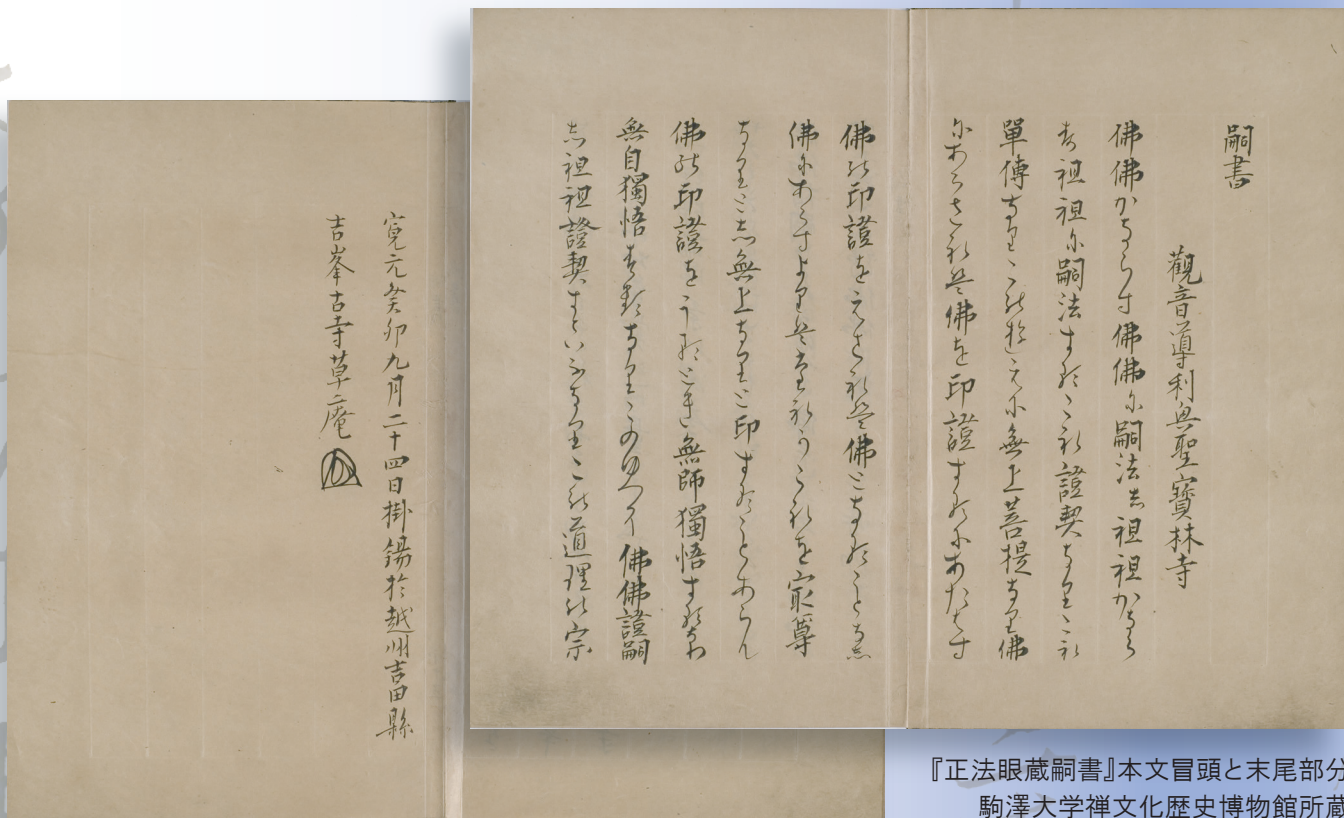 嗣書
觀音導利興聖寶林寺
佛佛かならす佛佛に嗣法し祖祖かなら
す祖祖に嗣法するこれ證契なりこれ
單傳なりこのゆえに無上菩提なり佛
にあらされは佛を印證するにあたはす
佛の印證をえされは佛となることなし
佛にあらすよりはたれかこれを最尊
なりとし無上なりと印することあらん
佛の印證をうるとき無師獨悟するなり
無自獨悟するなりこのゆへに佛佛證嗣
し祖祖證契すといふなりこの道理の宗
寛元癸卯九月二十四日掛錫於越州吉田縣
吉峯古寺草庵
『正法眼蔵嗣書』本文冒頭と末尾部分
駒澤大学禅文化歴史博物館所蔵